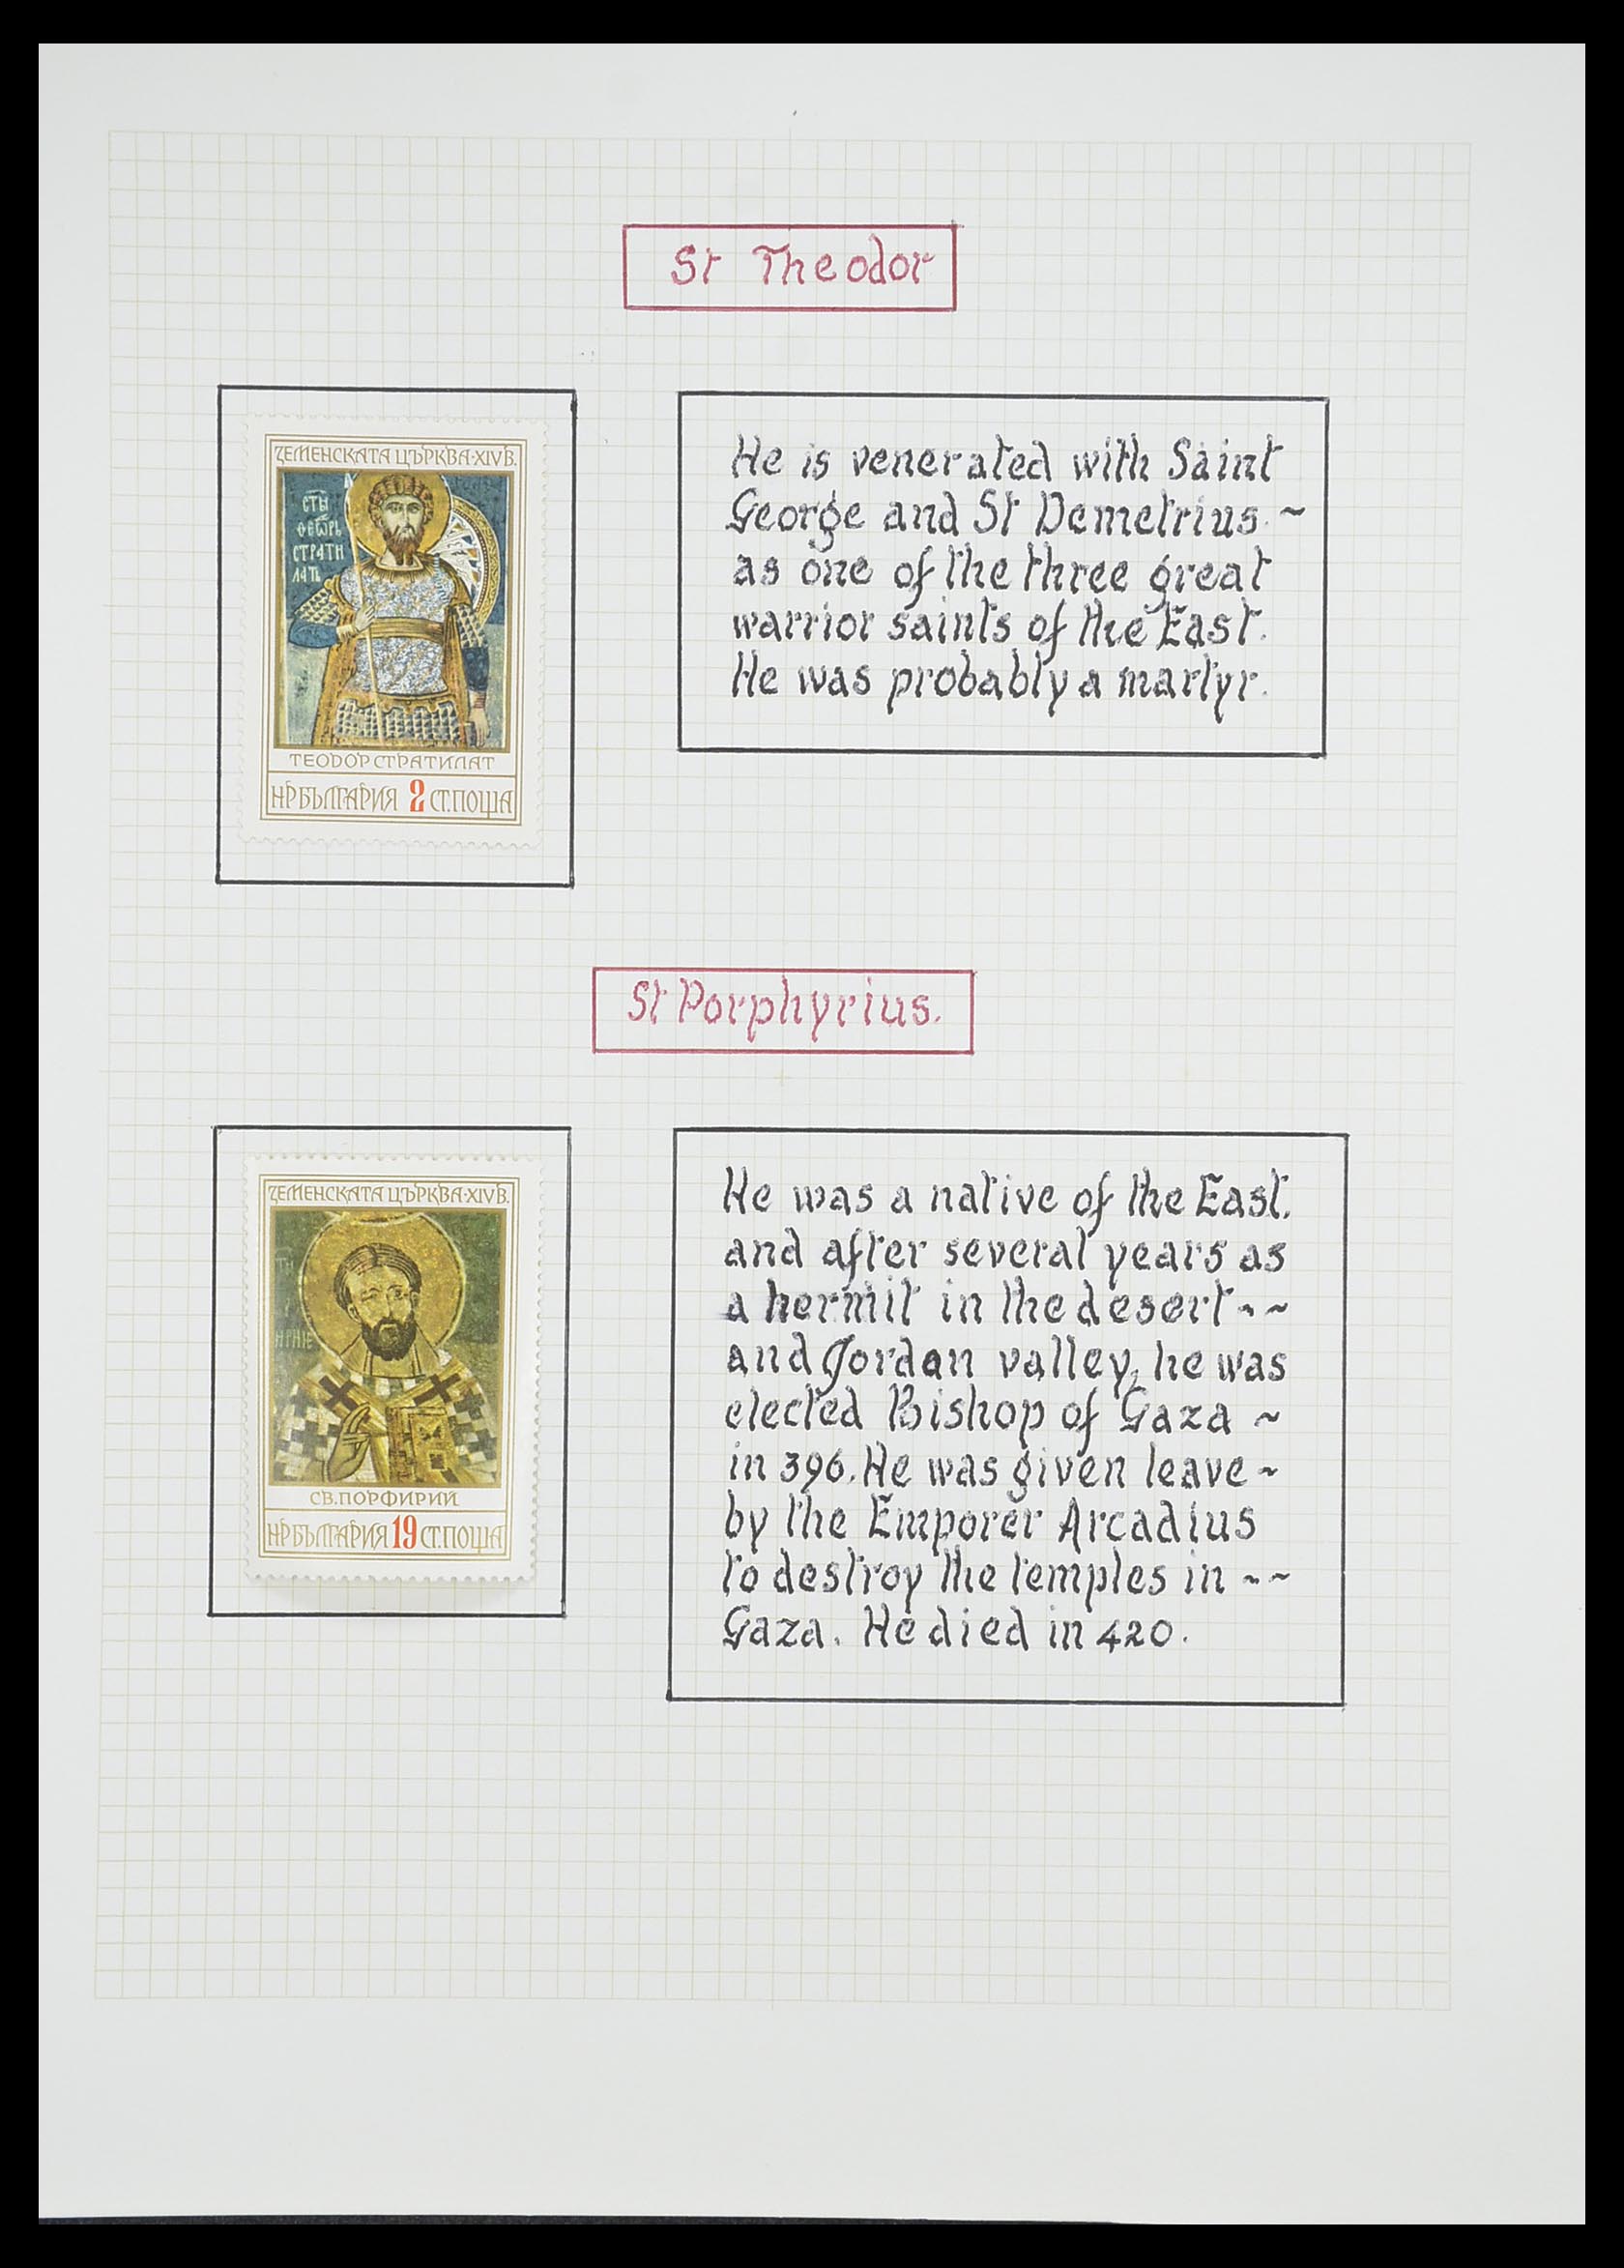 St Theodor
ЗЕМЕНСКАТА ЦЪРКВА·XIV В.
СТЫ
ФЕѠРЬ
СТРАТИ
ЛАТЬ
ТЕОДОР СТРАТИЛАТ
НР БЪЛГАРИЯ 2 СТ. ПОЩА
He is venerated with Saint
George and St Demetrius. ~
as one of the three great
warrior saints of the East.
He was probably a martyr.
St Porphyrius.
ЗЕМЕНСКАТА ЦЪРКВА·XIV В.
СВ. ПОРФИРИЙ
НР БЪЛГАРИЯ 19 СТ. ПОЩА
He was a native of the East.
and after several years as
a hermit in the desert ~ ~
and Jordan valley, he was
elected Bishop of Gaza ~
in 396. He was given leave ~
by the Emporer Arcadius
to destroy the temples in ~ ~
Gaza. He died in 420.